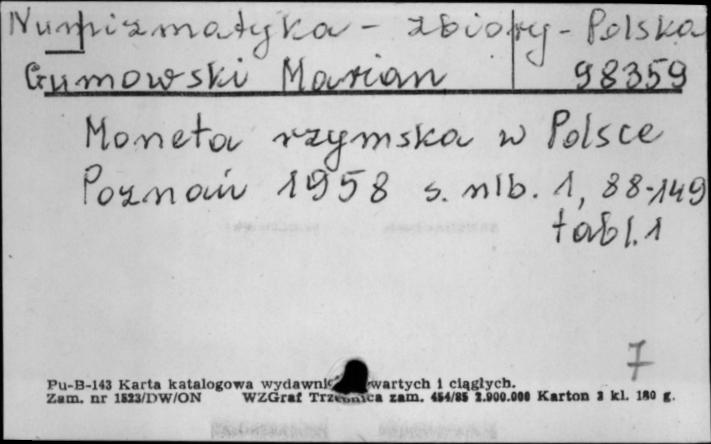 Numizmatyka - zbiory - Polska
Gumowski Marian 98359
Moneta rzymska w Polsce
Poznań 1958 s. nlb. 1, 88-149
tabl. 1
7
Pu-B-143 Karta katalogowa wydawnic zwartych i ciągłych.
Zam. nr 1523/DW/ON WZGraf Trzebnica zam. 454/85 2.900.000 Karton 3 kl. 180 g.